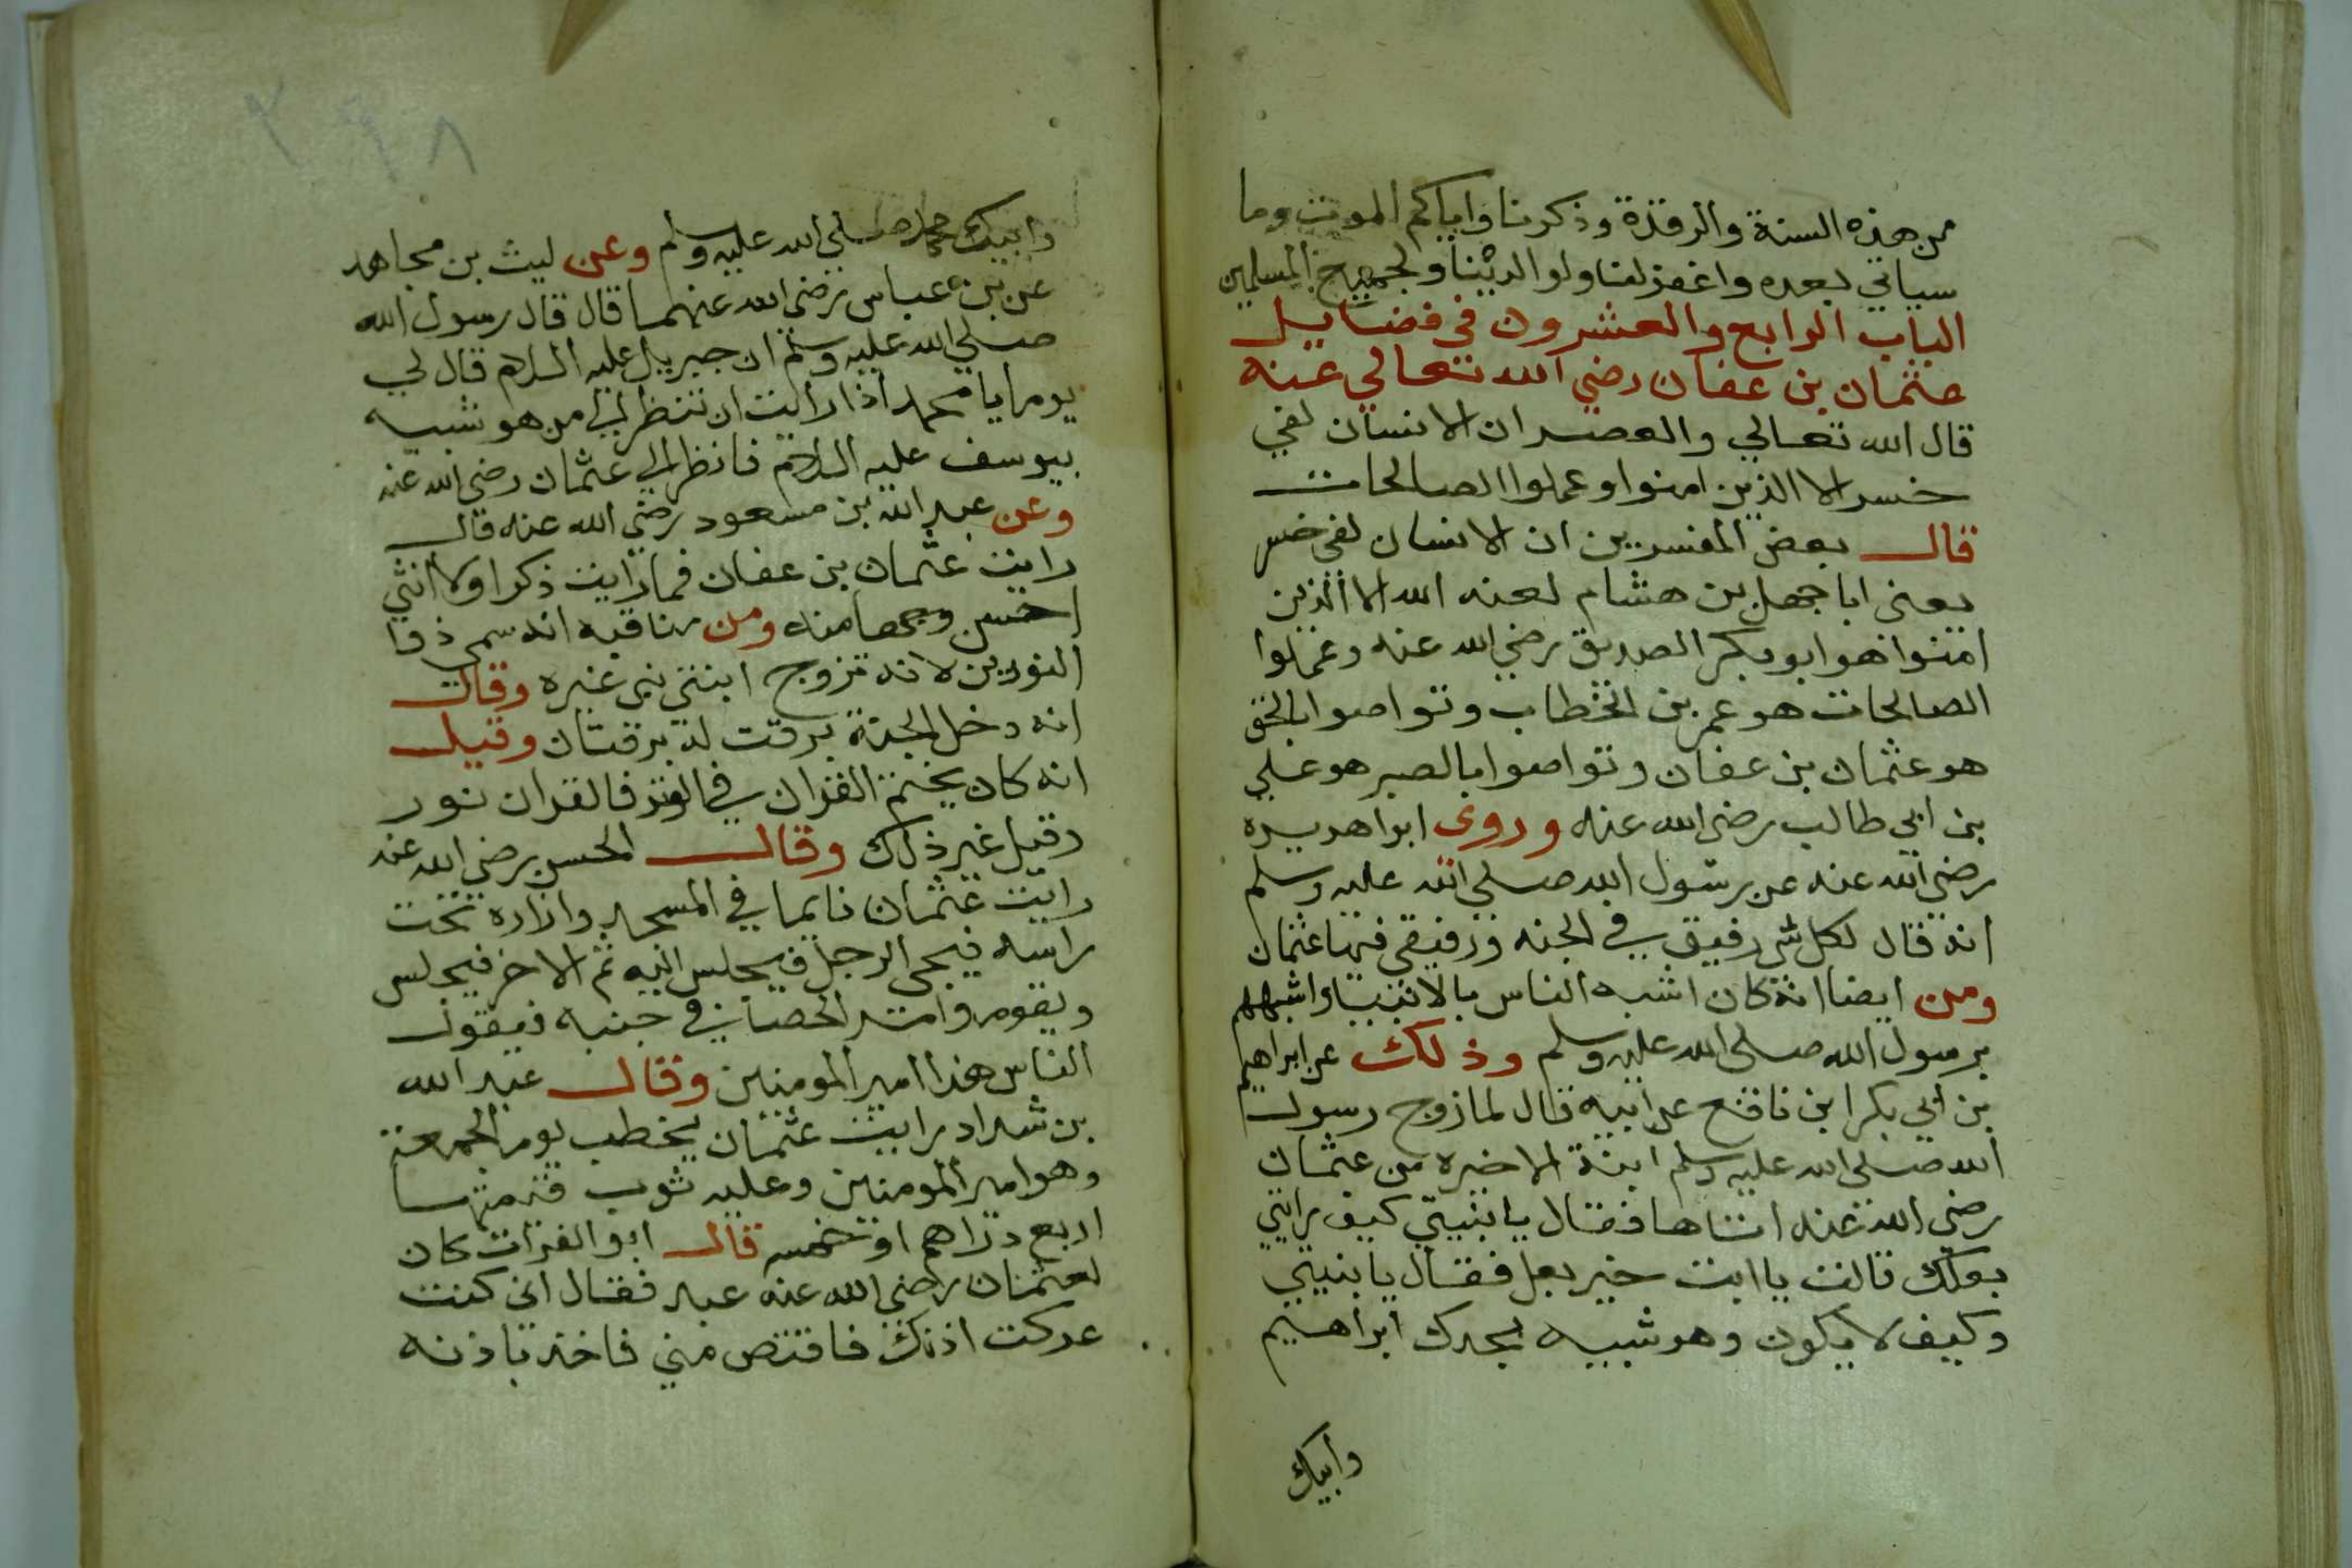 من هذه السنة والرقدة وذكرنا واياكم الموت وما
سياتي بعده واغفر لنا ولوالدينا ولجميع المسلمين
الباب الرابع والعشرون في فضايل
عثمان بن عفان رضي الله تعالي عنه
قال الله تعالي والعصر ان الانسان لفي
خسر الا الذين امنوا وعملوا الصالحات
قال بعض المفسرين ان الانسان لفي خسر
يعني ابا جهل بن هشام لعنه الله الا الذين
امنوا هو ابو بكر الصديق رضي الله عنه وعملوا
الصالحات هو عمر بن الخطاب وتواصوا بالحق
هو عثمان بن عفان وتواصوا بالصبر هو علي
بن ابي طالب رضي الله عنه وروى ابوا هريره
رضي الله عنه عن رسول الله صلي الله عليه وسلم
انه قال لكل شي رفيق في الجنه ورفيقي فيها عثمان
ومن ايضا انه كان اشبه الناس بالانبيا واشبههم
برسول الله صلى الله عليه وسلم وذلك عن ابراهيم
بن ابي بكر ابن نافع عن ابيه قال لما زوج رسول
الله صلى الله عليه وسلم ابنة الاخيره من عثمان
رضي الله عنه اتاها فقال يا بنيتي كيف رايتي
بعلك قالت يا ابت خير بعل فقال يا بنيتي
وكيف لا يكون وهو شبيه بجدك ابراهيم
وابيك
٢٩٨
وابيك محمد صلي الله عليه وسلم وعن ليث بن مجاهد
عن بن عباس رضي الله عنهما قال قال رسول الله
صلي الله عليه وسلم ان جبريل عليه السلام قال لي
يوما يا محمد اذا رايت ان تنظر الي من هو شبيه
بيوسف عليه السلام فانظر الي عثمان رضي الله عنه
وعن عبد الله بن مسعود رضي الله عنه قال
رايت عثمان بن عفان فما رايت ذكرا ولا انثي
احسن وجها منه ومن مناقبه انه سمي ذوا
النورين لانه تزوج ابنتي نبي غيره وقال
انه دخل الجنة برقت له برقتان وقيل
انه كان يختم القران في الوتر فالقران نور
وقيل غير ذلك وقال الحسن رضي الله عنه
رايت عثمان نايما في المسجد وازاره تحت
راسه فيجي الرجل فيجلس اليه ثم الاخر فيجلس
ويقوم واثر الحصا في جنبه فيقول
الناس هذا امير المومنين وقال عبد الله
بن شداد رايت عثمان يخطب يوم الجمعة
وهو امير المومنين وعليه ثوب قيمتها
اربع دراهم او خمسه قال ابو الفرات كان
لعثمان رضي الله عنه عبد فقال اني كنت
عركت اذنك فاقتص مني فاخذ باذنه